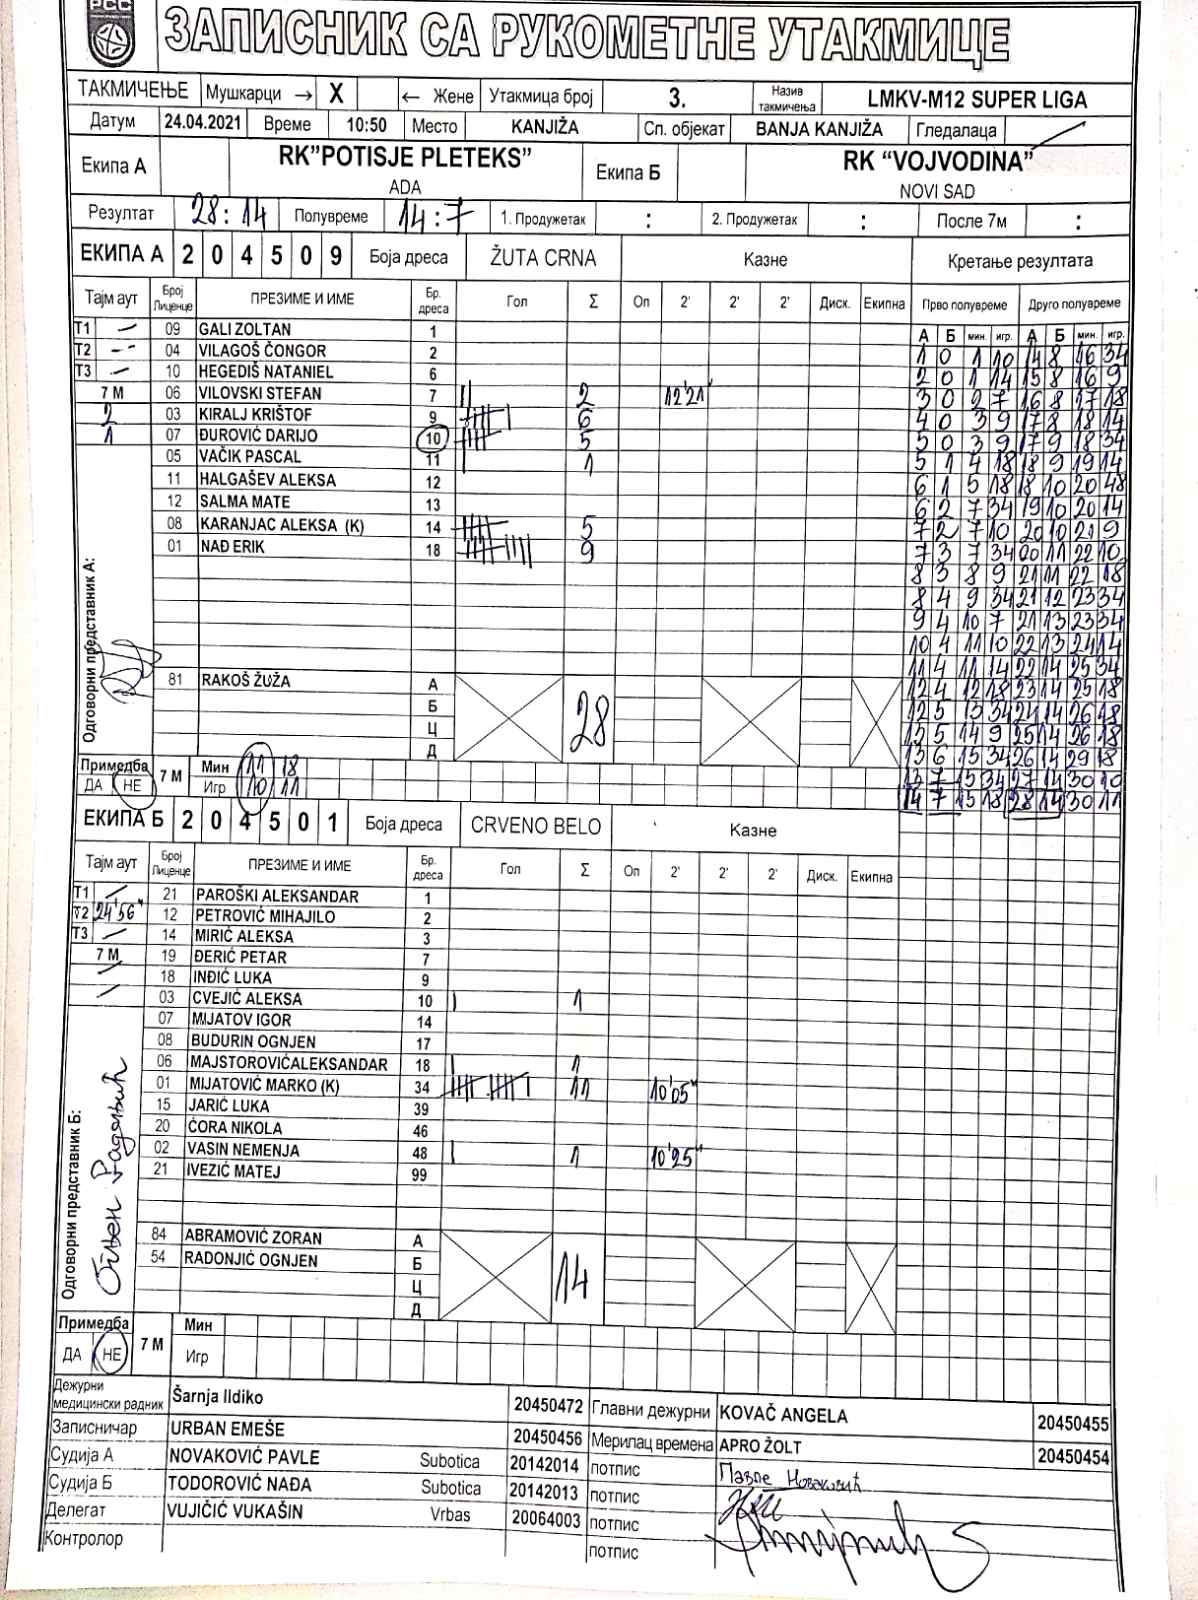 РСС
ЗАПИСНИК СА РУКОМЕТНЕ УТАКМИЦЕ
ТАКМИЧЕЊЕ Мушкарци → X ← Жене Утакмица број 3. Назив такмичења LMKV-M12 SUPER LIGA
Датум 24.04.2021 Време 10:50 Место KANJIŽA Сп. објекат BANJA KANJIŽA Гледалаца
Екипа А RK"POTISJE PLETEKS" ADA Екипа Б RK “VOJVODINA” NOVI SAD
Резултат 28:14 Полувреме 14:7 1. Продужетак : 2. Продужетак : После 7м :
ЕКИПА А 2 0 4 5 0 9 Боја дреса ŽUTA CRNA Казне Кретање резултата
Тајм аут Број Лиценце ПРЕЗИМЕ И ИМЕ Бр. дреса Гол Σ Оп 2' 2' 2' Диск. Екипна Прво полувреме Друго полувреме
А Б мин. игр. А Б мин. игр.
T1 – 09 GALI ZOLTAN 1
T2 -- 04 VILAGOŠ ČONGOR 2
T3 – 10 HEGEDIŠ NATANIEL 6
7 М 06 VILOVSKI STEFAN 7 || 2 12'21"
2 03 KIRALJ KRIŠTOF 9 6
1 07 ĐUROVIĆ DARIJO 10 5
05 VAČIK PASCAL 11 | 1
11 HALGAŠEV ALEKSA 12
12 SALMA MATE 13
08 KARANJAC ALEKSA (K) 14 5
01 NAĐ ERIK 18 9
1 0 1 10 14 8 16 34
2 0 1 14 15 8 16 9
3 0 2 7 16 8 17 18
4 0 3 9 17 8 18 14
5 0 3 9 17 9 18 34
5 1 4 18 18 9 19 14
6 1 5 18 18 10 20 48
6 2 7 34 19 10 20 14
7 2 7 10 20 10 21 9
7 3 7 34 20 11 22 10
8 3 8 9 21 11 22 18
8 4 9 34 21 12 23 34
9 4 10 7 21 13 23 34
10 4 11 10 22 13 24 14
11 4 11 14 22 14 25 34
12 4 12 18 23 14 25 18
12 5 13 34 24 14 26 18
13 5 14 9 25 14 26 18
13 6 15 34 26 14 29 18
13 7 15 34 27 14 30 10
14 7 15 18 28 14 30 11
Одговорни представник А:
81 RAKOŠ ŽUŽA А
Б
Ц
Д
28
Примедба ДА НЕ 7 М Мин 11 18
Игр 10 11
ЕКИПА Б 2 0 4 5 0 1 Боја дреса CRVENO BELO Казне
Тајм аут Број Лиценце ПРЕЗИМЕ И ИМЕ Бр. дреса Гол Σ Оп 2' 2' 2' Диск. Екипна
T1 – 21 PAROŠKI ALEKSANDAR 1
T2 24'56" 12 PETROVIĆ MIHAJILO 2
T3 – 14 MIRIĆ ALEKSA 3
7 М 19 ĐERIĆ PETAR 7
18 INĐIĆ LUKA 9
03 CVEJIĆ ALEKSA 10 | 1
07 MIJATOV IGOR 14
08 BUDURIN OGNJEN 17
06 MAJSTOROVIĆALEKSANDAR 18 | 1
01 MIJATOVIĆ MARKO (K) 34 11 10'05"
15 JARIĆ LUKA 39
20 ĆORA NIKOLA 46
02 VASIN NEMENJA 48 | 1 10'25"
21 IVEZIĆ MATEJ 99
Одговорни представник Б:
84 ABRAMOVIĆ ZORAN А
54 RADONJIĆ OGNJEN Б
Ц
Д
14
Примедба ДА НЕ 7 М Мин
Игр
Дежурни медицински радник Šarnja Ildiko 20450472 Главни дежурни KOVAČ ANGELA 20450455
Записничар URBAN EMEŠE 20450456 Мерилац времена APRO ŽOLT 20450454
Судија А NOVAKOVIĆ PAVLE Subotica 20142014 потпис Павле Новаковић
Судија Б TODOROVIĆ NAĐA Subotica 20142013 потпис
Делегат VUJIČIĆ VUKAŠIN Vrbas 20064003 потпис
Контролор потпис